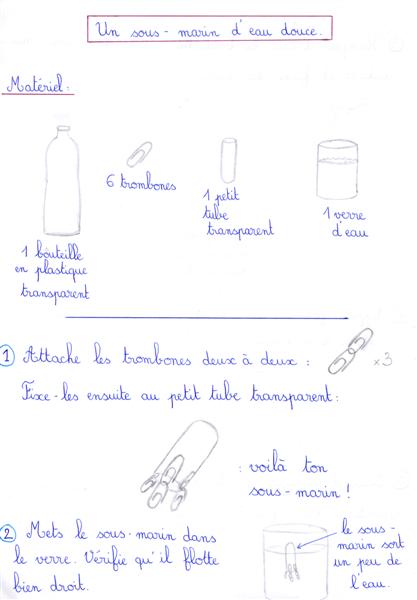 Un sous-marin d'eau douce.
Matériel:
6 trombones
1 petit
tube
transparent
1 verre
d'eau
1 bouteille
en plastique
transparent
1 Attache les trombones deux à deux : x3
Fixe-les ensuite au petit tube transparent:
: voilà ton
sous-marin !
2 Mets le sous-marin dans
le verre. Vérifie qu'il flotte
bien droit.
le sous-
marin sort
un peu de
l'eau.